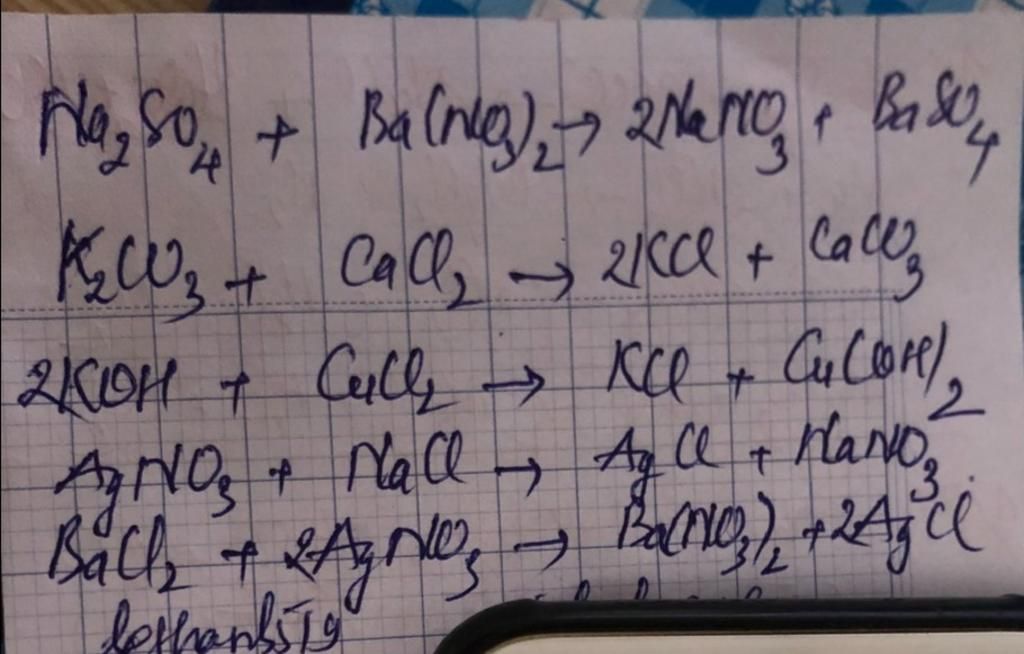 Na₂SO₄ + Ba(NO₃)₂ → 2NaNO₃ + BaSO₄
K₂CO₃ + CaCl₂ → 2KCl + CaCO₃
2KOH + CuCl₂ → KCl + Cu(OH)₂
AgNO₃ + NaCl → AgCl + NaNO₃
BaCl₂ + 2AgNO₃ → Ba(NO₃)₂ + 2AgCl